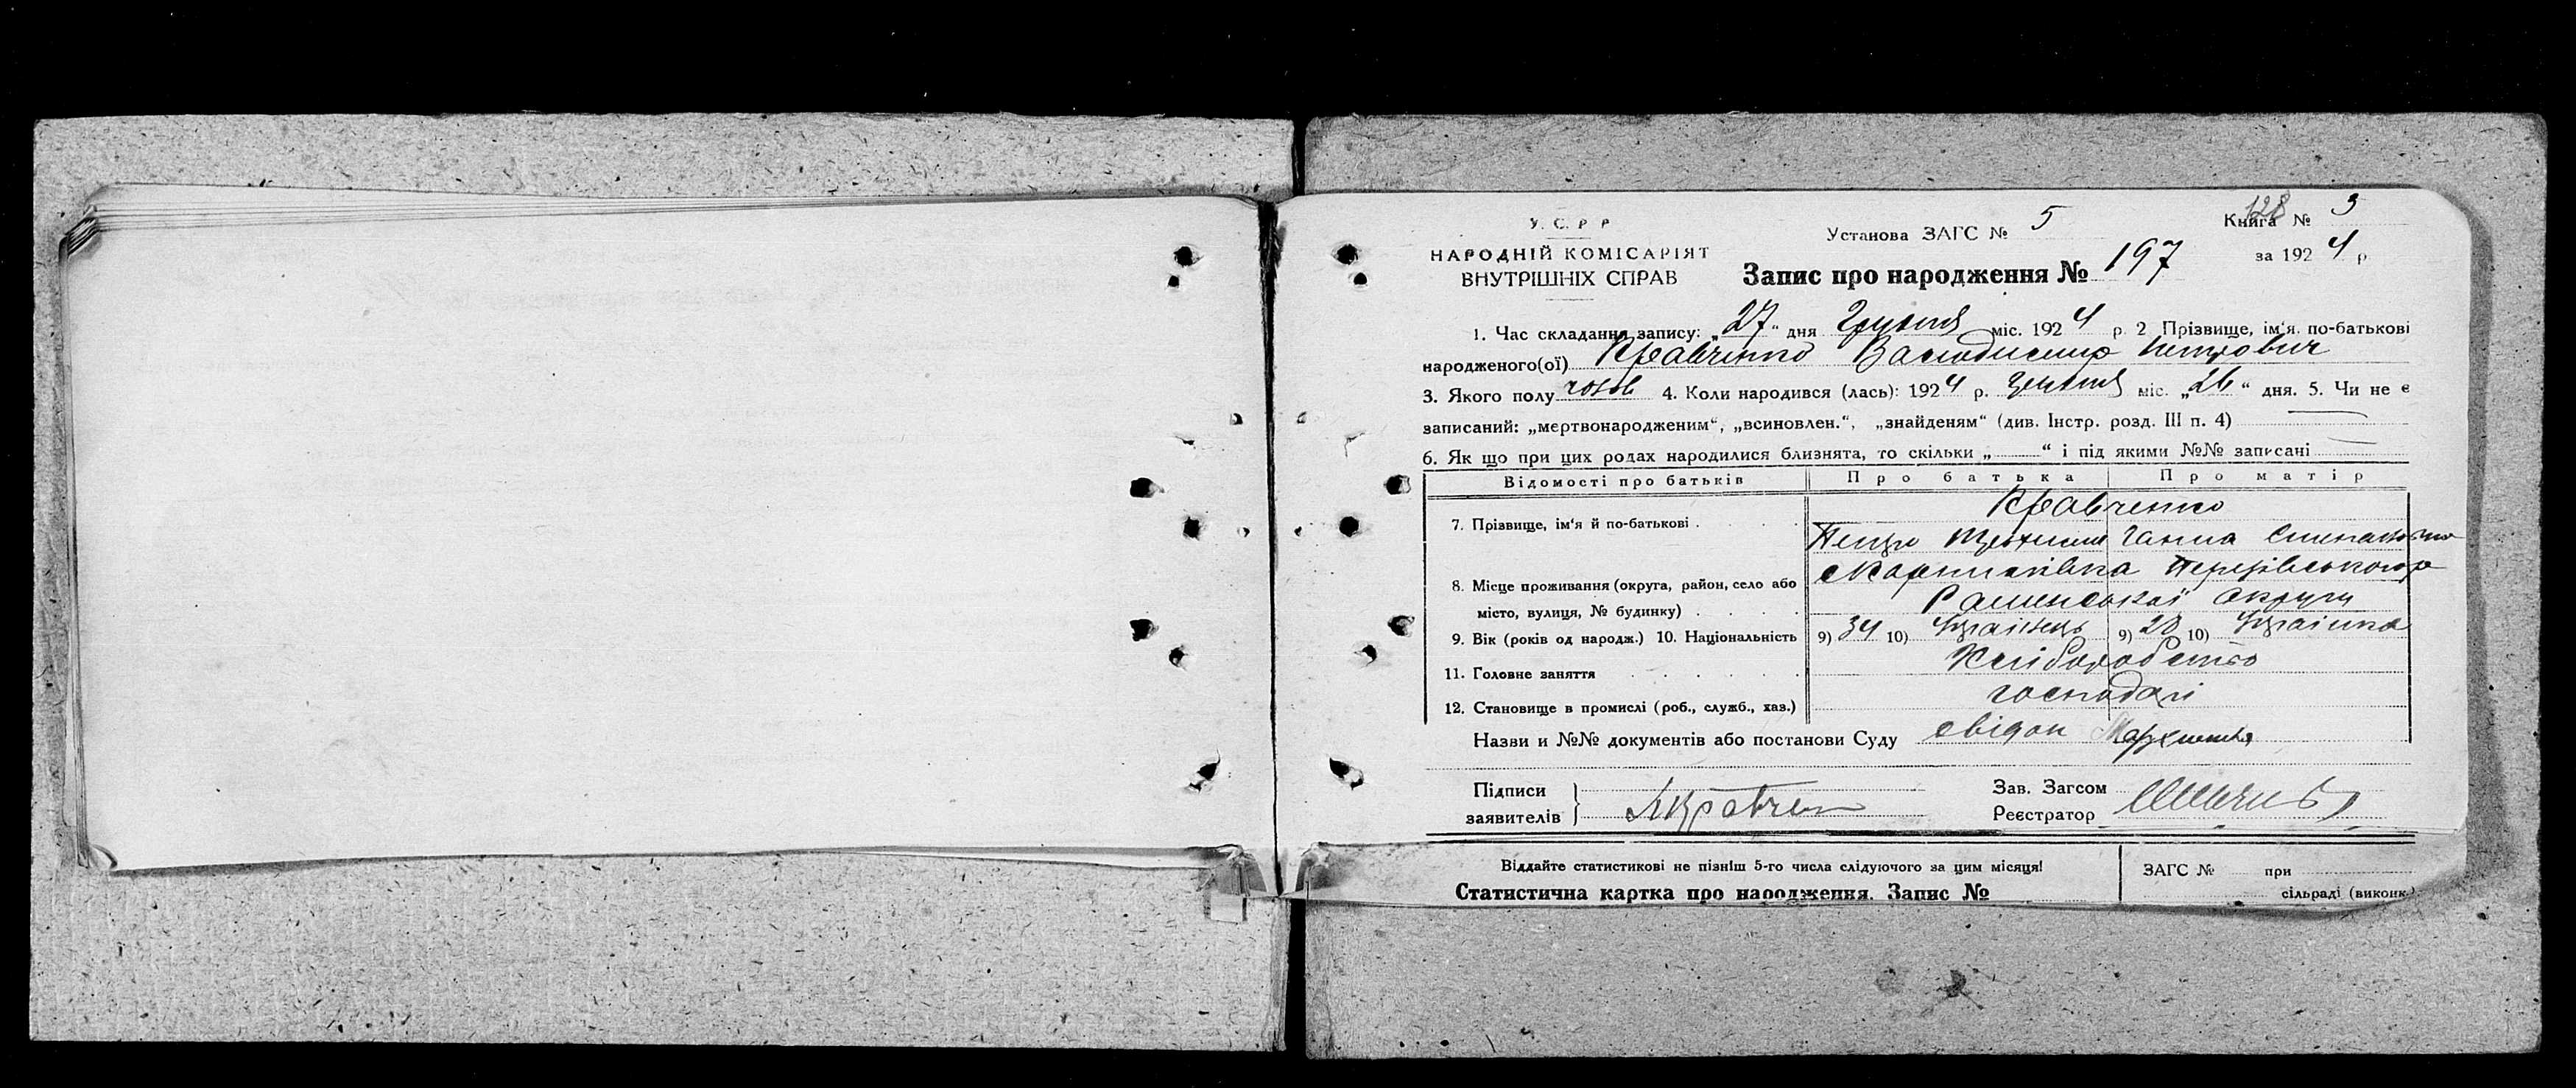 У. С. Р Р
НАРОДНІЙ КОМІСАРІЯТ
ВНУТРІШНІХ СПРАВ
Установа ЗАГС № 5
128
Книга № 3
за 1924 р
Запис про народження № 197
1. Час складання запису: „27“ дня Грудня міс. 1924 р. 2 Прізвище, ім'я, по-батькові
народженого(ої) Кравченко Петрович
3. Якого полу чолов 4. Коли народився (лась): 1924 р. грудня міс. „26“ дня. 5. Чи не є
записаний: „мертвонародженим“, „всиновлен.“, „знайденям“ (див. Інстр. розд. III п. 4)
6. Як що при цих родах народилися близнята, то скільки „ “ і під якими №№ записані
Відомості про батьків Про батька Про матір
7. Прізвище, ім'я й по-батькові Кравченко
Петро Ганна Степановна
8. Місце проживання (округа, район, село або
місто, вулиця, № будинку) Роменської округи
9. Вік (років од народж.) 10. Національність 9) 34 10) Українець 9) 28 10) Українка
11. Головне заняття Хліборобство
12. Становище в промислі (роб., служб., хаз.) господарі
Назви и №№ документів або постанови Суду свідок
Підписи
заявителів Кравчен
Зав. Загсом
Реєстратор
Віддайте статистикові не пізніш 5-го числа слідуючого за цим місяця!
Статистична картка про народження. Запис №
ЗАГС № при
сільраді (виконк.)